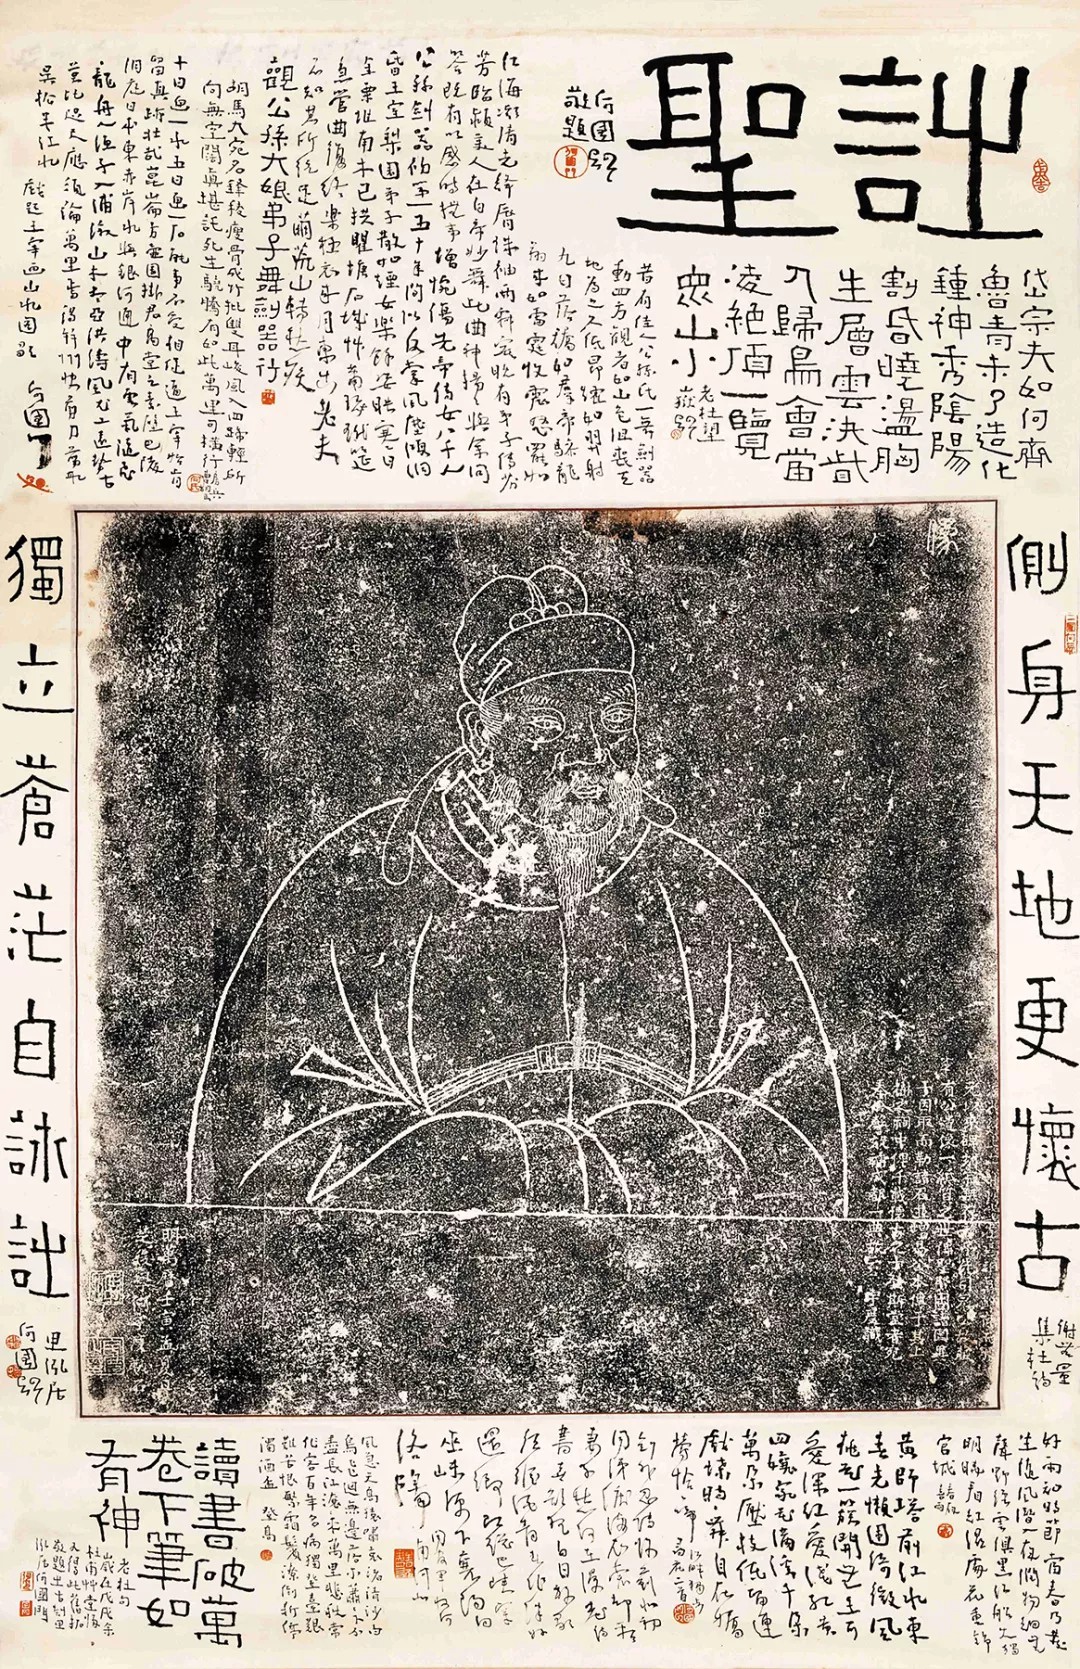 詩聖
何國門
敬題
岱宗夫如何齊
魯青未了造化
鍾神秀陰陽
割昏曉盪胸
生層雲決眥
入歸鳥會當
凌絕頂一覽
眾山小
老杜望
嶽
昔有佳人公孫氏一舞劍器
動四方觀者如山色沮喪天
地為之久低昂㸌如羿射
九日落矯如群帝驂龍
翔來如雷霆收震怒罷如
江海凝清光絳唇珠袖兩寂寞晚有弟子傳芬
芳臨潁美人在白帝妙舞此曲神揚揚與余問
答既有以感時撫事增惋傷先帝侍女八千人
公孫劍器初第一五十年間似反掌風塵澒洞
昏王室梨園弟子散如煙女樂餘姿映寒日
金粟堆南木已拱瞿塘石城草蕭瑟玳筵
急管曲復終樂極哀來月東出老夫
不知其所往足繭荒山轉愁疾
觀公孫大娘弟子舞劍器行
胡馬大宛名鋒稜瘦骨成竹批雙耳峻風入四蹄輕所
向無空闊真堪託死生驍騰有如此萬里可橫行
十日畫一水五日畫一石能事不受相促迫王宰始肯
留真跡壯哉崑崙方壺圖掛君高堂之素壁巴陵
洞庭日本東赤岸水與銀河通中有雲氣隨飛
龍舟人漁子入浦漵山木盡亞洪濤風尤工遠勢古
莫比咫尺應須論萬里焉得并州快剪刀剪取
吳松半江水
戲題王宰畫山水圖歌
何國門
側身天地更懷古
謝無量
集杜詩
獨立蒼茫自詠詩
何國門
像
好雨知時節當春乃發
生隨風潛入夜潤物細無
聲野徑雲俱黑江船火獨
明曉看紅濕處花重錦
官城
黃師塔前江水東
春光懶困倚微風
桃花一簇開無主可
愛深紅愛淺紅黃
四娘家花滿蹊千朵
萬朵壓枝低留連
戲蝶時時舞自在嬌
鶯恰恰啼
劍外忽傳收薊北初
聞涕淚滿衣裳卻看
妻子愁何在漫卷詩
書喜欲狂白日放歌
須縱酒青春作伴好
還鄉即從巴峽穿
巫峽便下襄陽向
洛陽
風急天高猿嘯哀渚清沙白
鳥飛迴無邊落木蕭蕭下不
盡長江滾滾來萬里悲秋常
作客百年多病獨登臺艱
難苦恨繁霜鬢潦倒新停
濁酒杯
登高
讀書破萬
卷下筆如
有神
老杜句
歲在戊戌